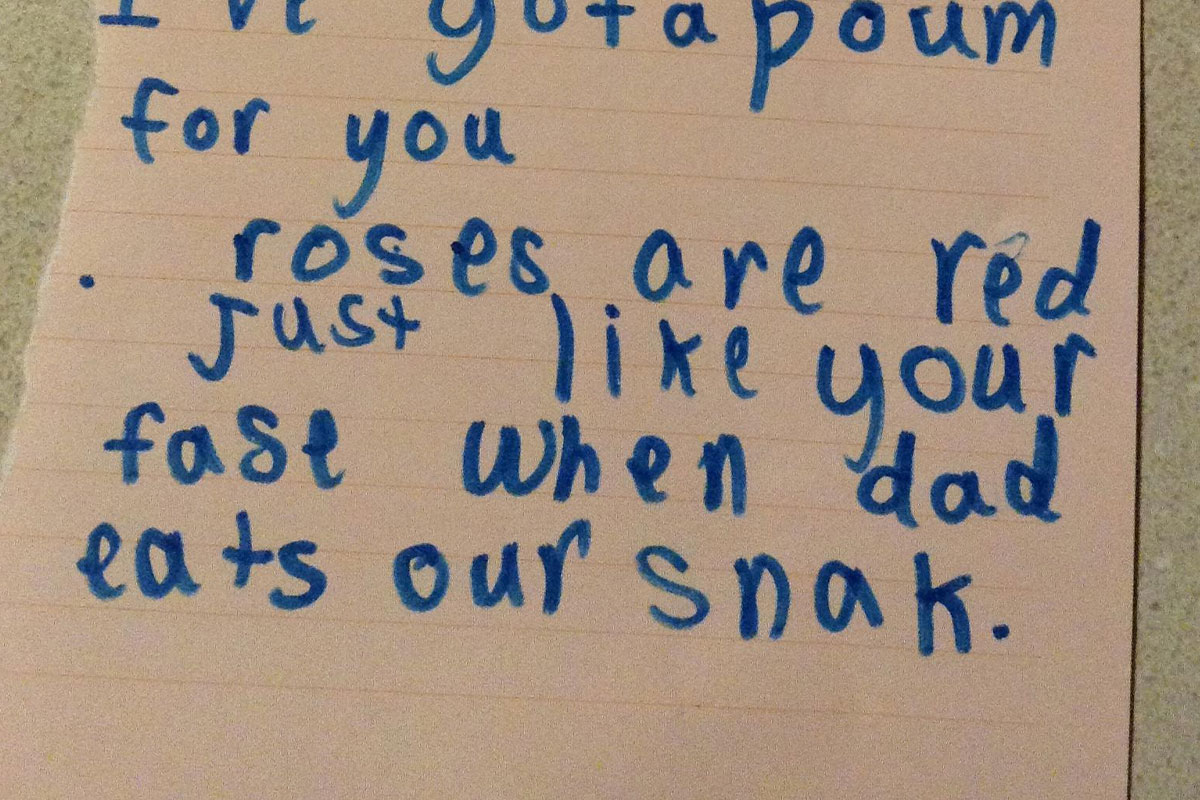 I've got a poum
for you
. roses are red
just like your
fase when dad
eats our snak.